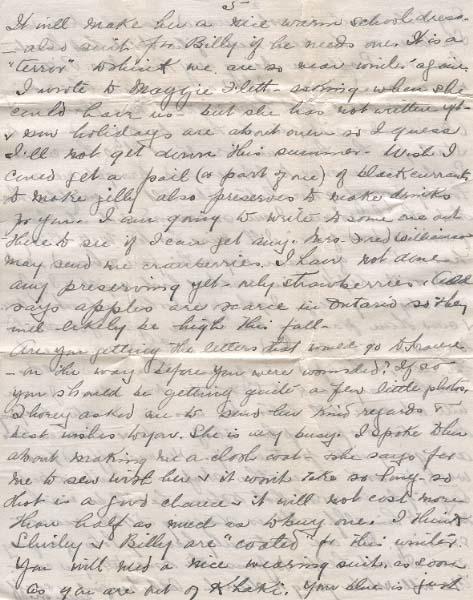 5
It will make her a nice warm school dress
- also suit for Billy if he needs one. It is a
"terror" to think we are so near winter again.
I wrote to Maggie asking when she
could have us - but she has not written yet -
& now holidays are about over so I guess
I'll not get down this summer - Wish I
could get a pail (or part of one) of black currants
to make jelly also preserves to make drinks
for you. I am going to write to some one out
there to see if I can get any. Mrs. Fred Williamson
may send me cranberries. I have not done
any preserving yet - only strawberries.
says apples are scarce in Ontario so they
will likely be high this fall -
Are you getting the letters that would go to France
- on the way before you were wounded? If so
you should be getting quite a few little photos.
asked me to send her kind regards &
best wishes to you. She is very busy. I spoke then
about making me a cloth coat - she says for
me to sew with her & it won't take so long - so
that is a good chance & it will not cost more
than half as much as to buy one. I think
Shirley & Billy are "coated" for this winter.
You will need a nice wearing suit as soon
as you are out of Khaki. Your blue is just